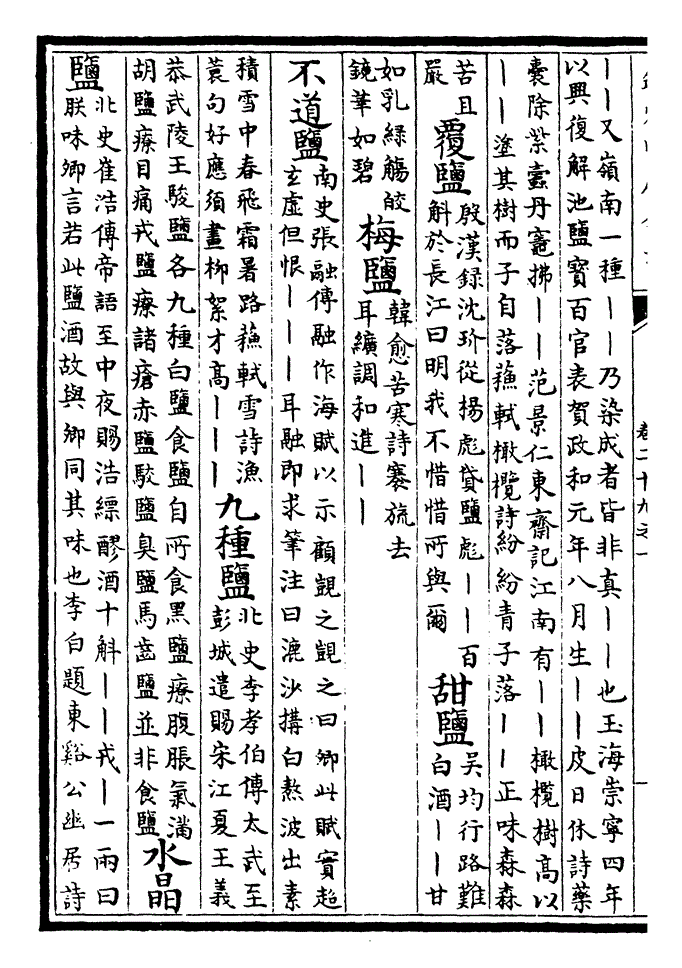 ｜｜又嶺南一種｜｜乃染成者皆非真｜｜也玉海崇寧四年
以興復解池鹽寶百官表賀政和元年八月生｜｜皮日休詩藥
囊除紫蠹丹竈拂｜｜范景仁東齋記江南有｜｜橄欖樹高以
｜｜塗其樹而子自落蘓軾橄欖詩紛紛青子落｜｜正味森森
苦且
嚴
覆鹽
殷漢録沈珍從楊彪貸鹽彪｜｜百
斛於長江曰明我不惜惜所與爾
甜鹽
吴均行路難
白酒｜｜甘
如乳緑觴皎
鏡華如碧
梅鹽
韓愈苦寒詩褰旒去
耳纊調和進｜｜
不道鹽
南史張融傳融作海賦以示顧覬之覬之曰卿此賦實超
玄虚但恨｜｜｜耳融即求筆注曰漉沙搆白熬波出素
積雪中春飛霜暑路蘓軾雪詩漁
蓑句好應須畫柳絮才高｜｜｜
九種鹽
北史李孝伯傳太武至
彭城遣賜宋江夏王義
恭武陵王駿鹽各九種白鹽食鹽自所食黑鹽療腹脹氣滿
胡鹽療目痛戎鹽療諸瘡赤鹽駮鹽臭鹽馬齒鹽並非食鹽
水晶
鹽
北史崔浩傳帝語至中夜賜浩縹醪酒十斛｜｜戎｜一兩曰
朕味卿言若此鹽酒故與卿同其味也李白題東谿公幽居詩
卷二十九之一